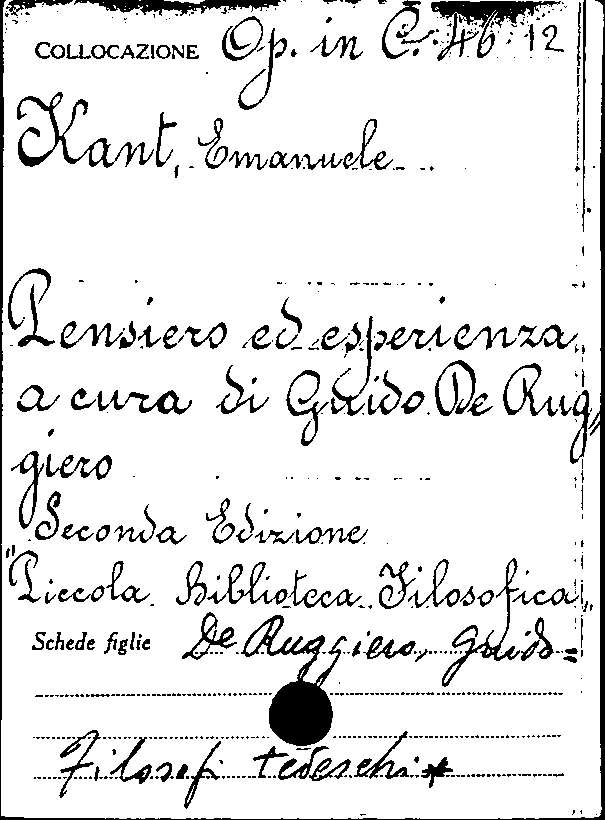 COLLOCAZIONE Op. in C. 46. 12
Kant, Emanuele
Pensiero ed esperienza,
a cura di Guido De Rug,,
giero
Seconda Edizione
"Piccola Biblioteca Filosofica„
Schede figlie De Ruggiero, Guido=
Filosofi tedeschi*